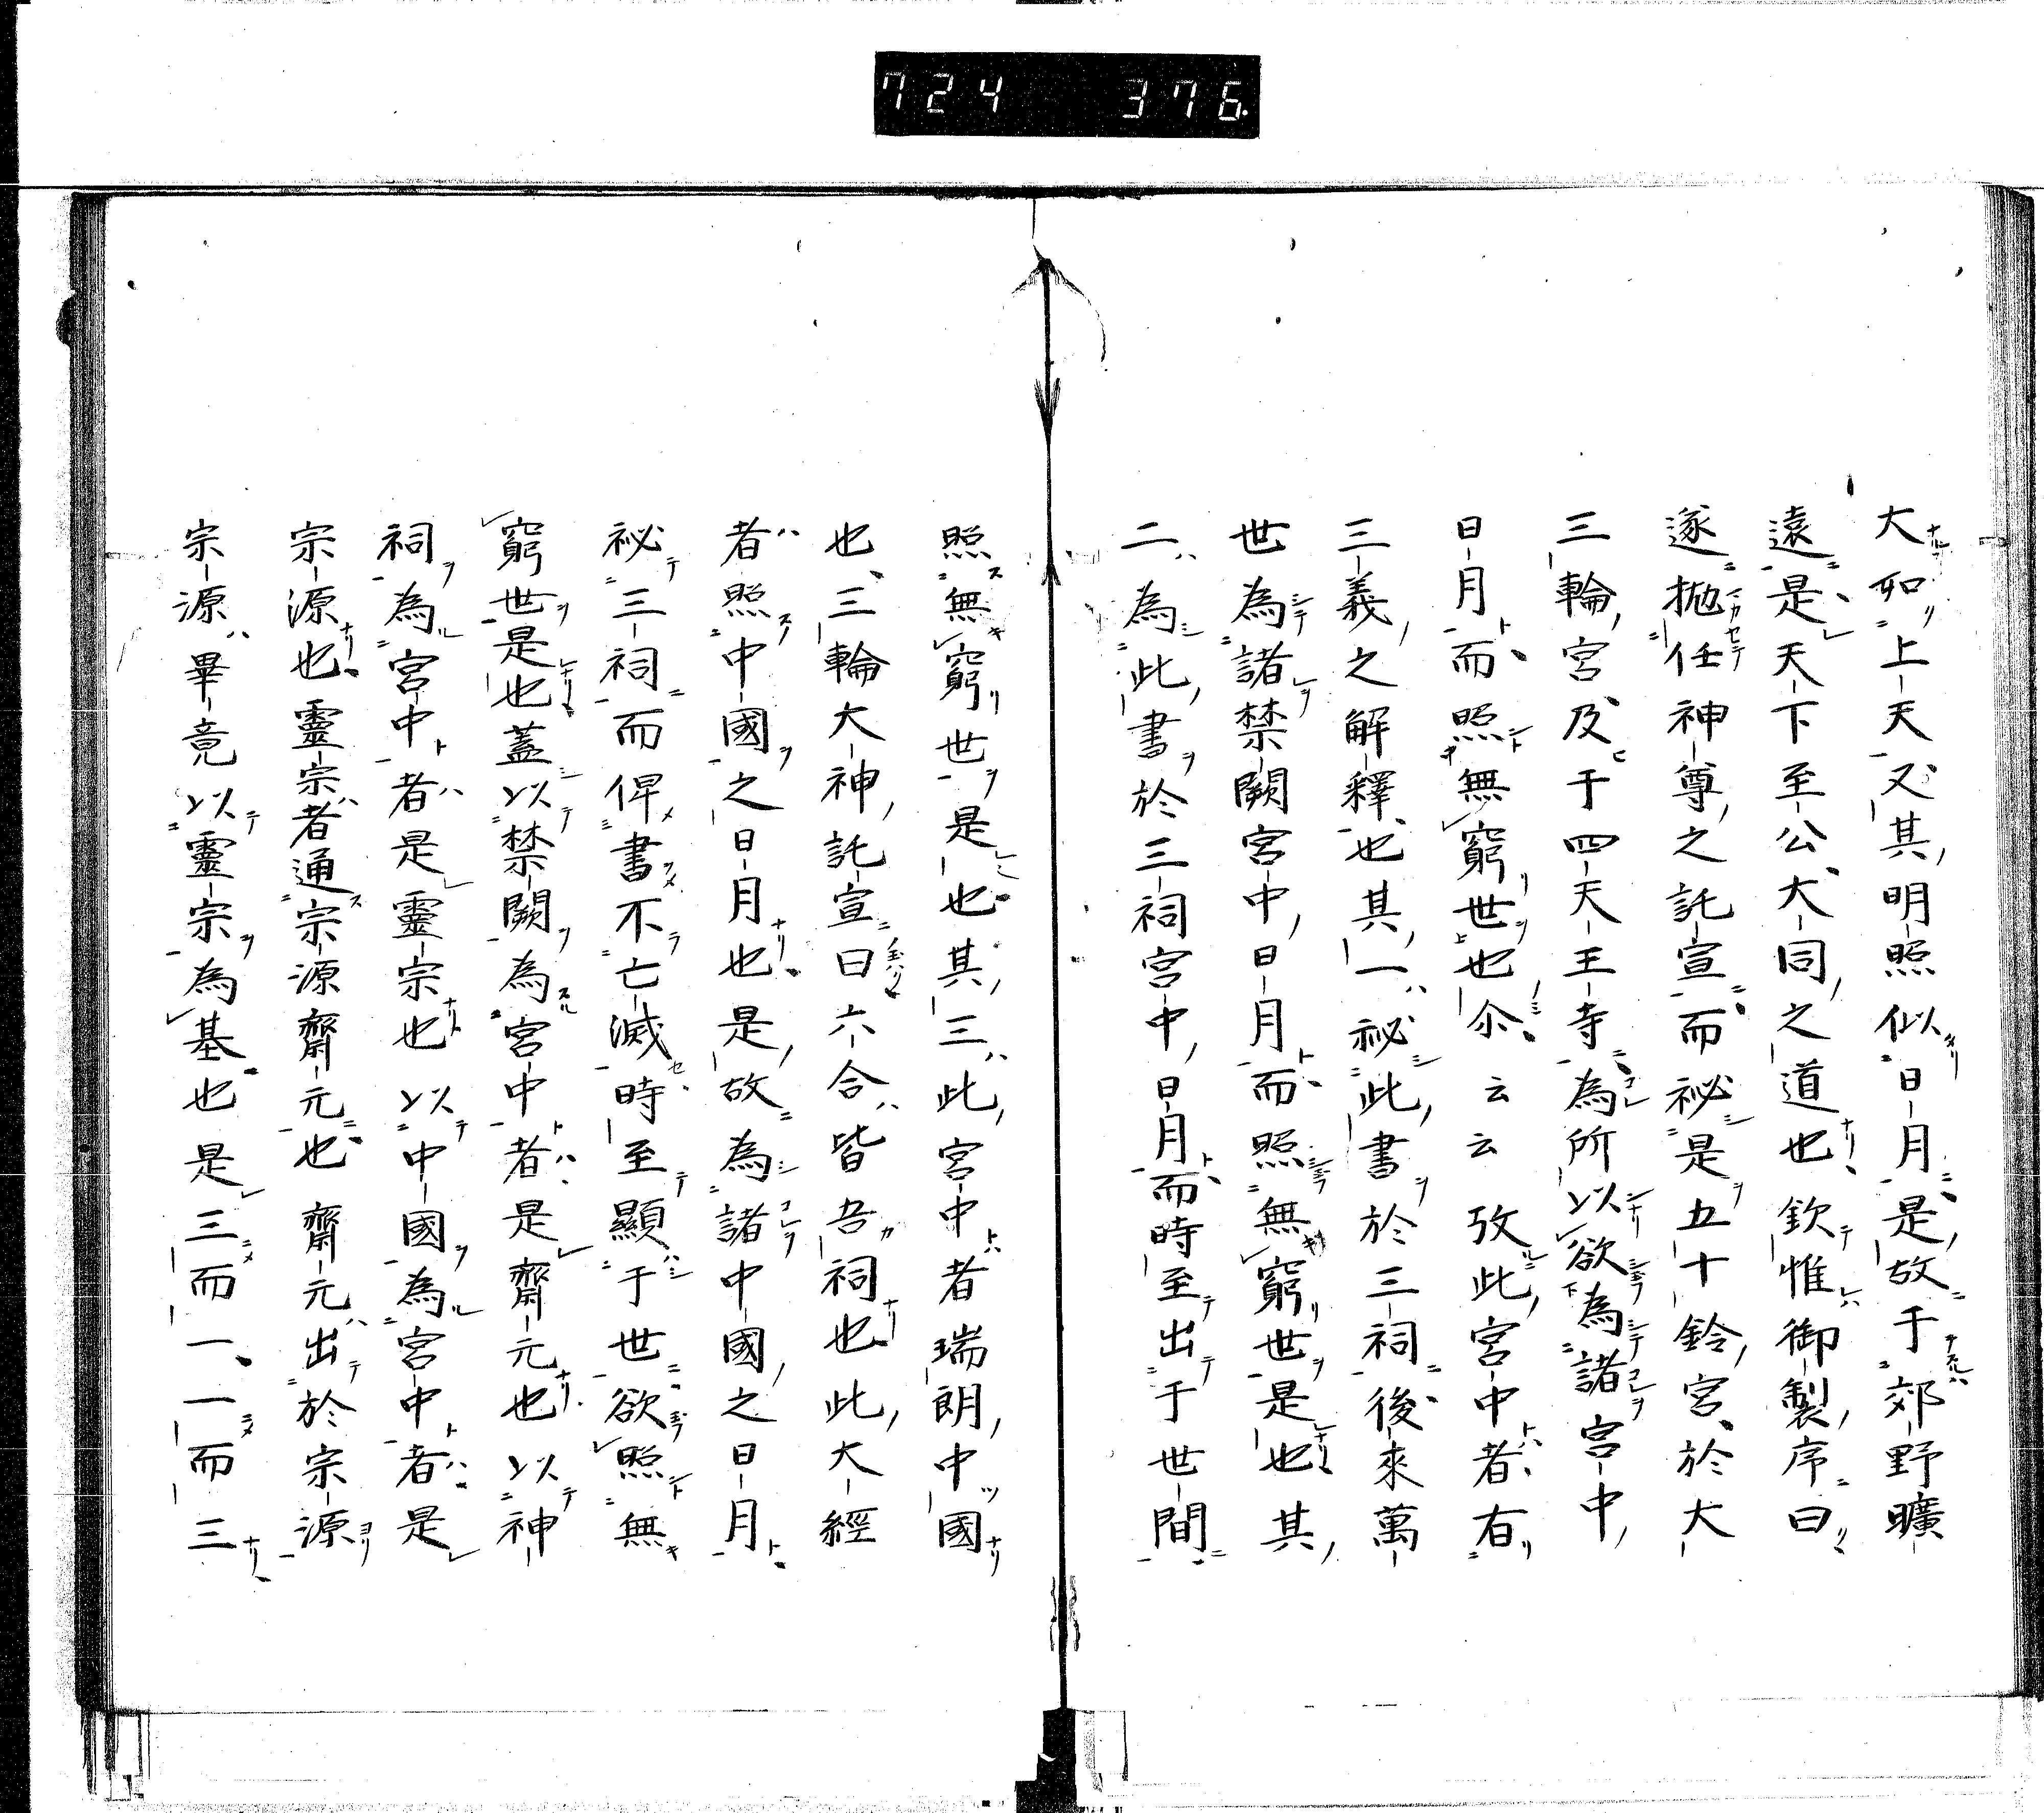 724 376
大如上天又其明照似日月是故于郊野曠
遠是天下至公大同之道也欽惟御製序曰
遂拋任神尊之託宣而祕是五十鈴宮於大
三輪宮及于四天王寺為所以欲為諸宮中
日月而照無窮世也尒云云攷此宮中者有
三義之解釋也其一祕此書於三祠後來萬
世為諸禁闕宮中日月而照無窮世是也其
二為此書於三祠宮中日月而時至出于世間
照無窮世是也其三此宮中者瑞朗中國
也三輪大神託宣曰六合皆吾祠也此大經
者照中國之日月也是故為諸中國之日月
祕三祠而俾書不亡滅時至顯于世欲照無
窮世是也蓋以禁闕為宮中者是齋元也以神
祠為宮中者是靈宗也以中國為宮中者是
宗源也靈宗者通宗源齋元也齋元出於宗源
宗源畢竟以靈宗為基也是三而一一而三